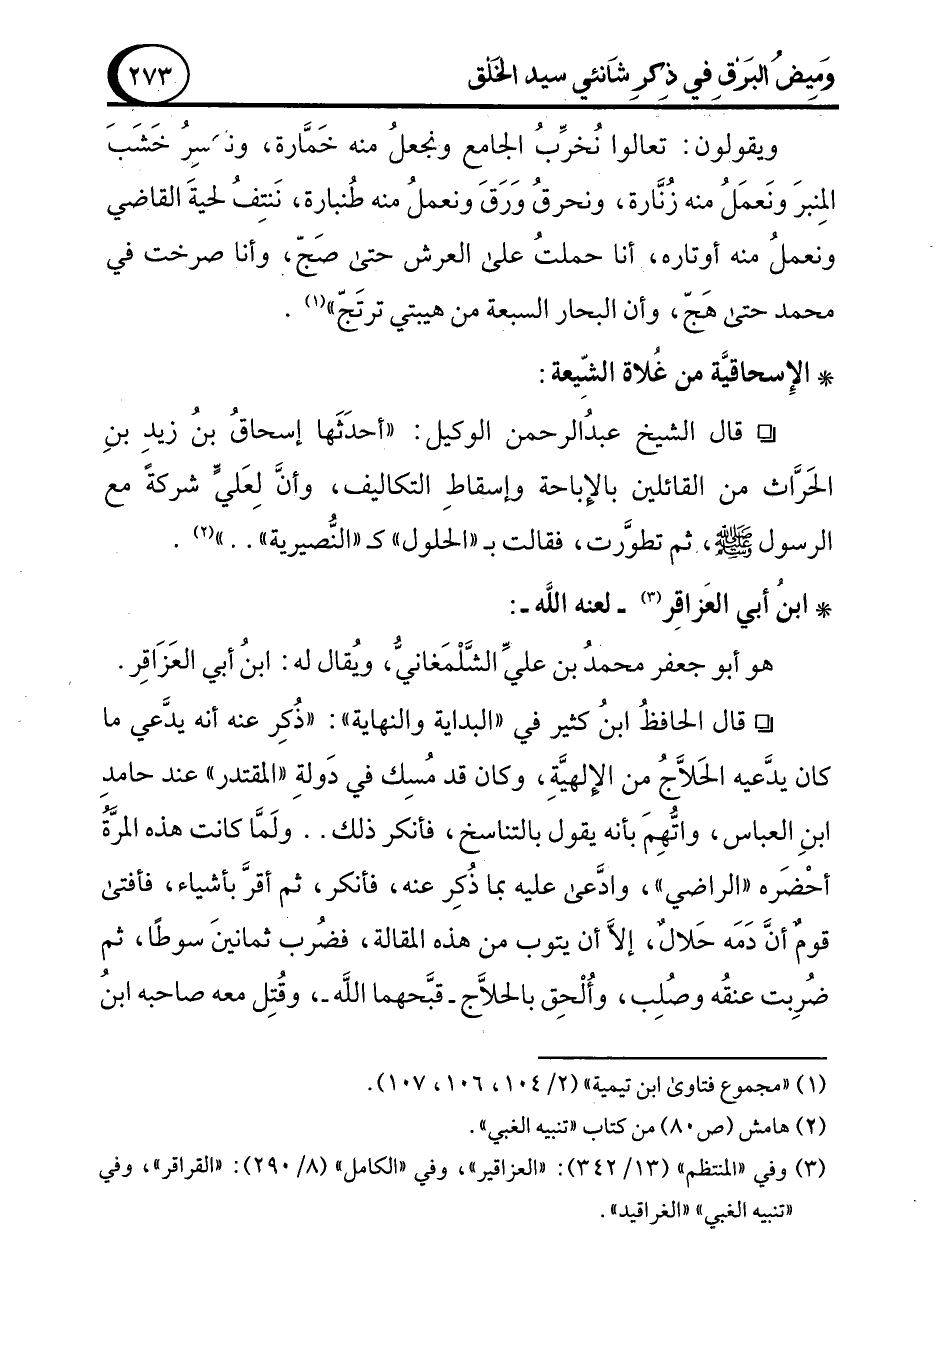 وَمِيضُ البَرَقِ في ذِكرِ شَانئي سيد الخَلْق
٢٧٣
ويقولون: تعالوا نُخرِّبُ الجامع ونجعلُ منه خَمَّارة، خَشَبَ
المِنبرَ ونَعمَلُ منه زُنَّارة، ونحرقُ وَرَقَ ونعملُ منه طُنبارة، نَنتِفُ لحيةَ القاضي
ونعملُ منه أوتاره، أنا حملتُ على العرش حتى صَجّ، وأنا صرخت في
محمد حتى هَجّ، وأن البحار السبعة من هيبتي ترتَجّ»(١) .
* الإسحاقيَّة من غُلاة الشِّيعة:
❏ قال الشيخ عبدُالرحمن الوكيل: «أحدَثَها إسحاقُ بنُ زيدِ بنِ
الحَرَّاث من القائلين بالإباحة وإسقاطِ التكاليف، وأنَّ لِعَليٍّ شركةً مع
الرسول ﷺ، ثم تطوَّرت، فقالت بـ «الحلول» كـ «النُّصيرية» . . »(٢) .
* ابنُ أبي العَزاقر(٣) ـ لعنه اللَّه ـ:
هو أبو جعفر محمدُ بن عليٍّ الشَّلْمَغانيُّ، ويُقال له: ابنُ أبي العَزَاقِر.
❏ قال الحافظُ ابنُ كثير في «البداية والنهاية»: «ذُكر عنه أنه يدَّعي ما
كان يدَّعيه الحَلاَّجُ من الإلهيَّةِ، وكان قد مُسِك في دَولةِ «المقتدر» عند حامدِ
ابنِ العباس، واتُّهِمَ بأنه يقول بالتناسخ، فأنكر ذلك. . ولَمَّا كانت هذه المرَّةُ
أحْضَره «الراضي»، وادَّعى عليه بما ذُكر عنه، فأنكر، ثم أقرَّ بأشياء، فأفتى
قومٌ أنَّ دَمَه حَلالٌ، إلاَّ أن يتوب من هذه المقالة، فضُرب ثمانينَ سوطًا، ثم
ضُرِبت عنقُه وصُلِب، وأُلْحِق بالحلاَّج ـ قبَّحهما اللَّه ـ، وقُتِل معه صاحبه ابنُ
(١) «مجموع فتاوى ابن تيمية» (٢/ ١٠٤، ١٠٦، ١٠٧).
(٢) هامش (ص٨٠) من كتاب «تنبيه الغبي».
(٣) وفي «المنتظم» (١٣/ ٣٤٢): «العزاقير»، وفي «الكامل» (٨/ ٢٩٠): «القراقر»، وفي
«تنبيه الغبي» «الغراقيد».